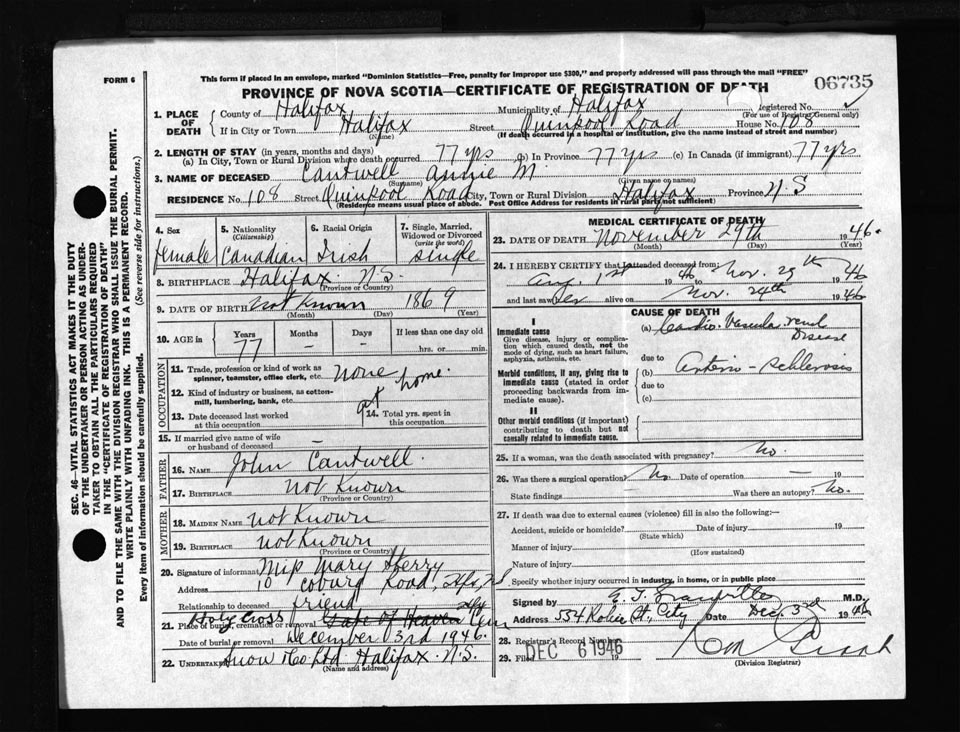 FORM 6
This form if placed in an envelope, marked "Dominion Statistics—Free, penalty for improper use $300," and properly addressed will pass through the mail "FREE"
06735
PROVINCE OF NOVA SCOTIA—CERTIFICATE OF REGISTRATION OF DEATH
1. PLACE OF DEATH
County of Halifax Municipality of Halifax Registered No.
(For use of Registrar General only)
If in City or Town Halifax Street Quinpool Road House No. 108
(Name) (If death occurred in a hospital or institution, give the name instead of street and number)
2. LENGTH OF STAY (in years, months and days)
(a) In City, Town or Rural Division where death occurred 77 yrs (b) In Province 77 yrs (c) In Canada (if immigrant) 77 yrs
3. NAME OF DECEASED Cantwell Annie M
(Surname) (Given name or names)
RESIDENCE No. 108 Street Quinpool Road City, Town or Rural Division Halifax Province N.S
(Residence means usual place of abode. Post Office Address for residents in rural parts not sufficient)
4. Sex
female
5. Nationality (Citizenship)
Canadian
6. Racial Origin
Irish
7. Single, Married, Widowed or Divorced (write the word)
single
8. BIRTHPLACE Halifax N.S.
(Province or Country)
9. DATE OF BIRTH Not Known 1869
(Month) (Day) (Year)
10. AGE in Years Months Days If less than one day old
77 – – hrs. or min.
OCCUPATION
11. Trade, profession or kind of work as spinner, teamster, office clerk, etc. None
12. Kind of industry or business, as cotton-mill, lumbering, bank, etc. at home.
13. Date deceased last worked at this occupation
14. Total yrs. spent in this occupation
15. If married give name of wife or husband of deceased –
FATHER
16. NAME John Cantwell.
17. BIRTHPLACE Not Known
(Province or Country)
MOTHER
18. MAIDEN NAME Not Known
19. BIRTHPLACE Not Known
(Province or Country)
20. Signature of informant Miss Mary Sherry
Address 10 Coburg Road, Hfx, N.S
Relationship to deceased friend
21. Place of burial, cremation or removal Holy Cross Gate of Heaven Cem Hfx
Date of burial or removal December 3rd 1946.
22. UNDERTAKER Snow & Co Ltd. Halifax. N.S.
(Name and address)
MEDICAL CERTIFICATE OF DEATH
23. DATE OF DEATH November 29th 1946.
(Month) (Day) (Year)
24. I HEREBY CERTIFY that I attended deceased from:
Aug. 1st 1946 to Nov. 29th 1946
and last saw her alive on Nov. 29th 1946
CAUSE OF DEATH
I
Immediate cause
Give disease, injury or complication which caused death, not the mode of dying, such as heart failure, asphyxia, asthenia, etc.
(a) Cardio-Vascular renal Disease
due to
Morbid conditions, if any, giving rise to immediate cause (stated in order proceeding backwards from immediate cause).
(b) Arterio-Schlerosis
due to
(c)
II
Other morbid conditions (if important) contributing to death but not causally related to immediate cause.
25. If a woman, was the death associated with pregnancy? no.
26. Was there a surgical operation? No. Date of operation — 19
State findings Was there an autopsy? No.
27. If death was due to external causes (violence) fill in also the following:—
Accident, suicide or homicide? Date of injury 19
(State which)
Manner of injury
(How sustained)
Nature of injury
Specify whether injury occurred in industry, in home, or in public place
Signed by E. T. Granville M.D.
Address 554 Robie St., City Date Dec. 3rd 1946
28. Registrar's Record Number
29. Filed DEC 6 1946 19
(Division Registrar)
SEC. 46—VITAL STATISTICS ACT MAKES IT THE DUTY
OF THE UNDERTAKER OR PERSON ACTING AS UNDERTAKER TO OBTAIN ALL THE PARTICULARS REQUIRED
IN THE "CERTIFICATE OF REGISTRATION OF DEATH"
AND TO FILE THE SAME WITH THE DIVISION REGISTRAR WHO SHALL ISSUE THE BURIAL PERMIT.
WRITE PLAINLY WITH UNFADING INK. THIS IS A PERMANENT RECORD.
Every item of information should be carefully supplied. (See reverse side for instructions.)